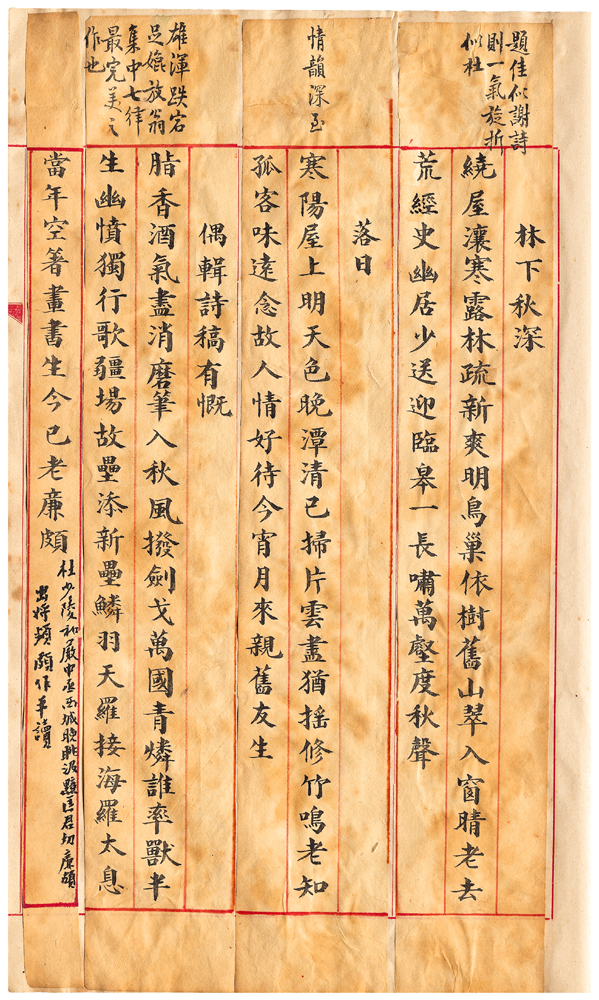 題佳似謝詩
則一氣旋折
似杜
林下秋深
繞屋瀼寒露林疏新爽明鳥巢依樹舊山翠入窗晴老去
荒經史幽居少送迎臨皋一長嘯萬壑度秋聲
情韻深至
落日
寒陽屋上明天色晚潭清已掃片雲盡猶搖修竹鳴老知
孤客味遠念故人情好待今宵月來親舊友生
雄渾跌宕
足媲放翁
集中七律
最完美之
作也
偶輯詩稿有慨
脂香酒氣盡消磨筆入秋風撥劍戈萬國青燐誰率獸半
生幽憤獨行歌疆場故壘添新壘鱗羽天羅接海羅太息
當年空箸畫書生今已老廉頗
杜少陵和嚴中丞西城晚眺汲黯匡君切廉頗
出將頻頗作平讀